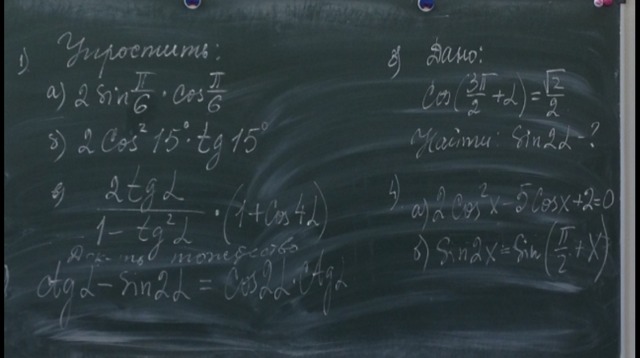 1) Упростить:
а) 2 sin π/6 · cos π/6
б) 2 cos² 15° · tg 15°
в) 2 tg α / (1 - tg² α) · (1 + cos 4α)
Док-ть тождество
ctg α - sin 2α = cos 2α · ctg α
3) Дано:
cos(3π/2 + α) = √2/2
Найти: sin 2α - ?
4)
а) 2 cos² x - 5 cos x + 2 = 0
б) sin 2x = sin(π/2 + x)